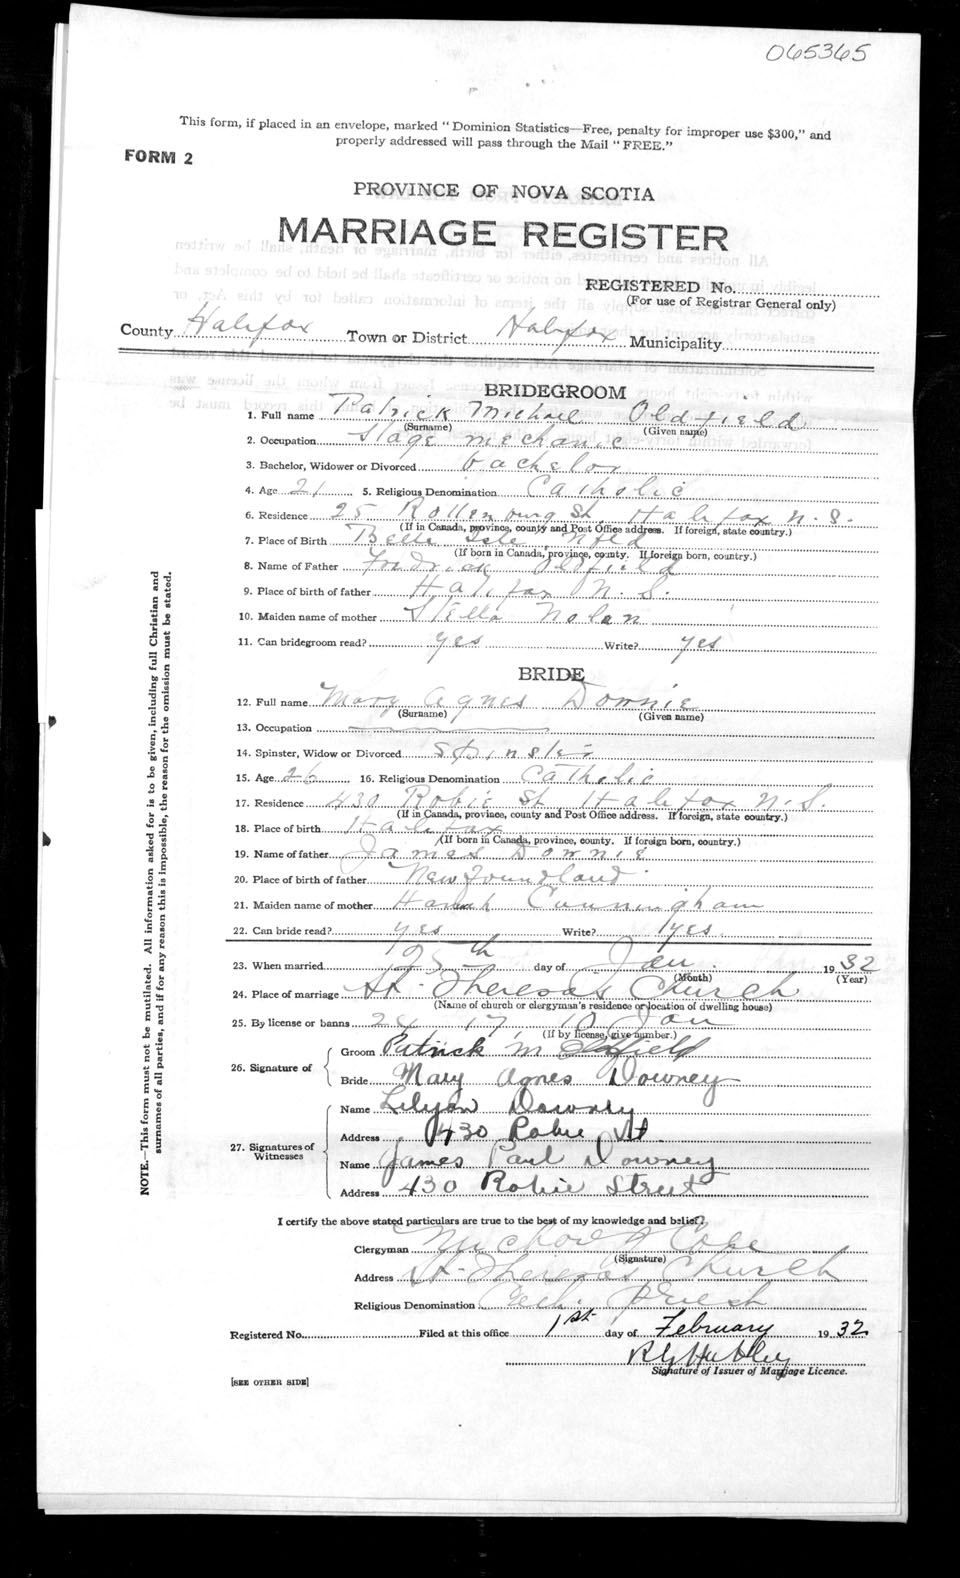 065365
This form, if placed in an envelope, marked "Dominion Statistics—Free, penalty for improper use $300," and
properly addressed will pass through the Mail "FREE."
FORM 2
PROVINCE OF NOVA SCOTIA
MARRIAGE REGISTER
REGISTERED No.
(For use of Registrar General only)
County Halifax Town or District Halifax Municipality
BRIDEGROOM
1. Full name Patrick Michael Oldfield
(Surname) (Given name)
2. Occupation Stage mechanic
3. Bachelor, Widower or Divorced bachelor
4. Age 21 5. Religious Denomination Catholic
6. Residence 25 St Halifax N.S.
(If in Canada, province, county and Post Office address. If foreign, state country.)
7. Place of Birth Belle Isle Nfld
(If born in Canada, province, county. If foreign born, country.)
8. Name of Father Oldfield
9. Place of birth of father Halifax N.S.
10. Maiden name of mother Stella Nolan
11. Can bridegroom read? yes Write? yes
BRIDE
12. Full name Mary Agnes Downie
(Surname) (Given name)
13. Occupation
14. Spinster, Widow or Divorced spinster
15. Age 26 16. Religious Denomination Catholic
17. Residence 430 Robie St Halifax N.S.
(If in Canada, province, county and Post Office address. If foreign, state country.)
18. Place of birth Halifax
(If born in Canada, province, county. If foreign born, country.)
19. Name of father James Downie
20. Place of birth of father Newfoundland
21. Maiden name of mother Hannah Cunningham
22. Can bride read? yes Write? yes
23. When married 25th day of Jan. 1932
(Month) (Year)
24. Place of marriage St. Theresa's Church
(Name of church or clergyman's residence or location of dwelling house)
25. By license or banns 24 17, 10 Jan
(If by license, give number.)
26. Signature of
Groom Patrick M Oldfield
Bride Mary Agnes Downey
27. Signatures of Witnesses
Name Lilyan Downey
Address 430 Robie St.
Name James Paul Downey
Address 430 Robie Street
I certify the above stated particulars are true to the best of my knowledge and belief.
Clergyman
(Signature)
Address St. Theresa's Church
Religious Denomination Priest
Registered No. Filed at this office 1st day of February 1932
Signature of Issuer of Marriage Licence.
[SEE OTHER SIDE]
NOTE.—This form must not be mutilated. All information asked for is to be given, including full Christian and
surnames of all parties, and if for any reason this is impossible, the reason for the omission must be stated.